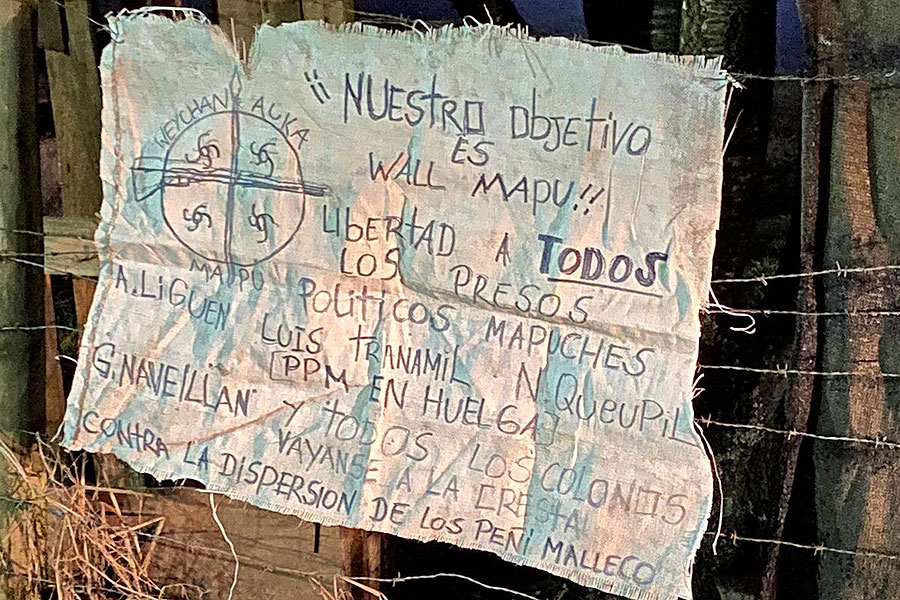 WEICHAN AUKA
MAPU
¡¡ NUESTRO Objetivo
ES
WALL MAPU!!
LIbERTAD A TODOS
LOS PRESOS
POLITICOS MAPUCHES
A. LiGUEN
LUIS TRANAMIL N. QUEUPIL
[PPM EN HUELGA]
G. NAVEILLAN
Y TODOS LOS COLONOS
VAYANSE A LA CRESTA!
CONTRA LA DISPERSION DE LOS PEÑI MALLECO